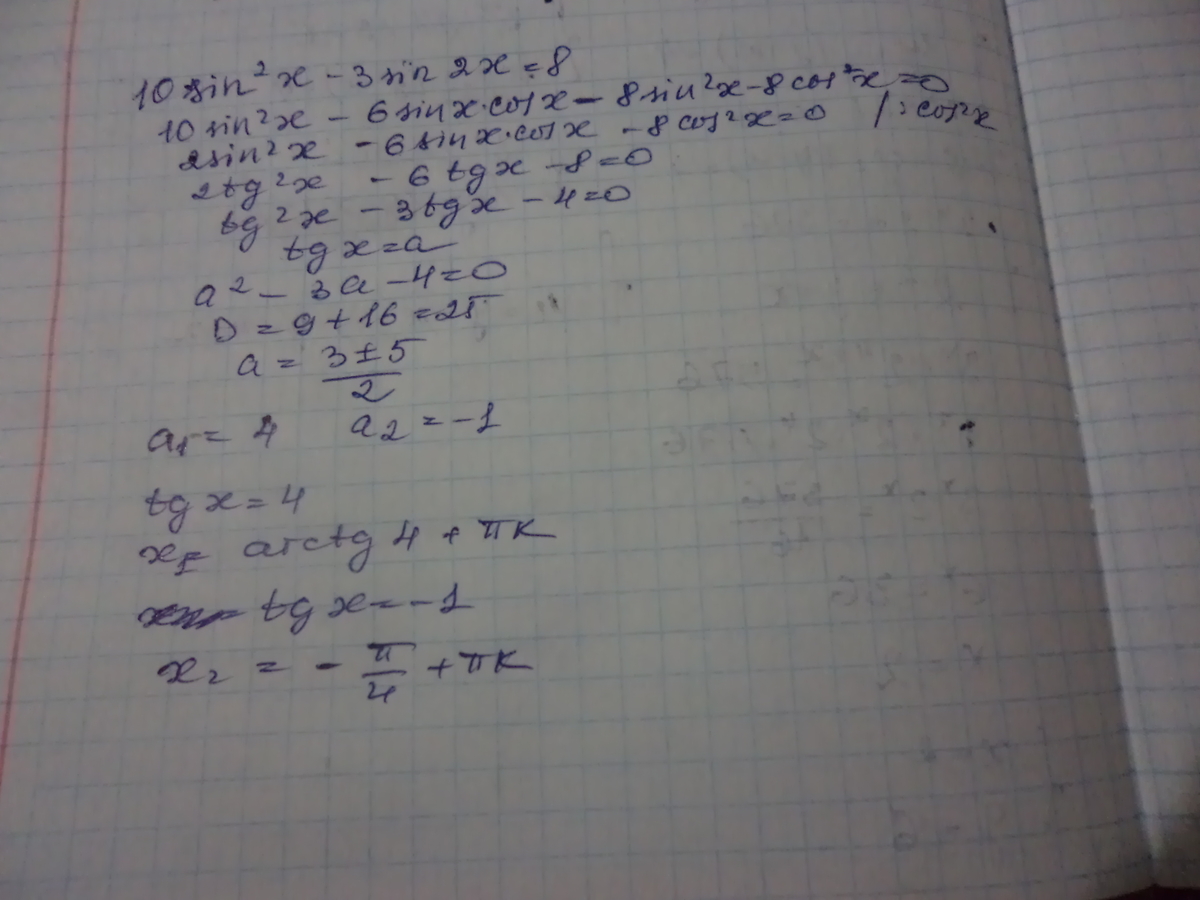 10 sin²x - 3 sin 2x = 8
10 sin²x - 6 sinx·cosx - 8 sin²x - 8 cos²x = 0
2sin²x - 6 sinx·cosx - 8 cos²x = 0 /: cos²x
2tg²x - 6 tgx - 8 = 0
tg²x - 3tgx - 4 = 0
tg x = a
a² - 3a - 4 = 0
D = 9 + 16 = 25
a = (3 ± 5)/2
a₁ = 4 a₂ = -1
tg x = 4
x₁ = arctg 4 + πk
tg x = -1
x₂ = - π/4 + πk